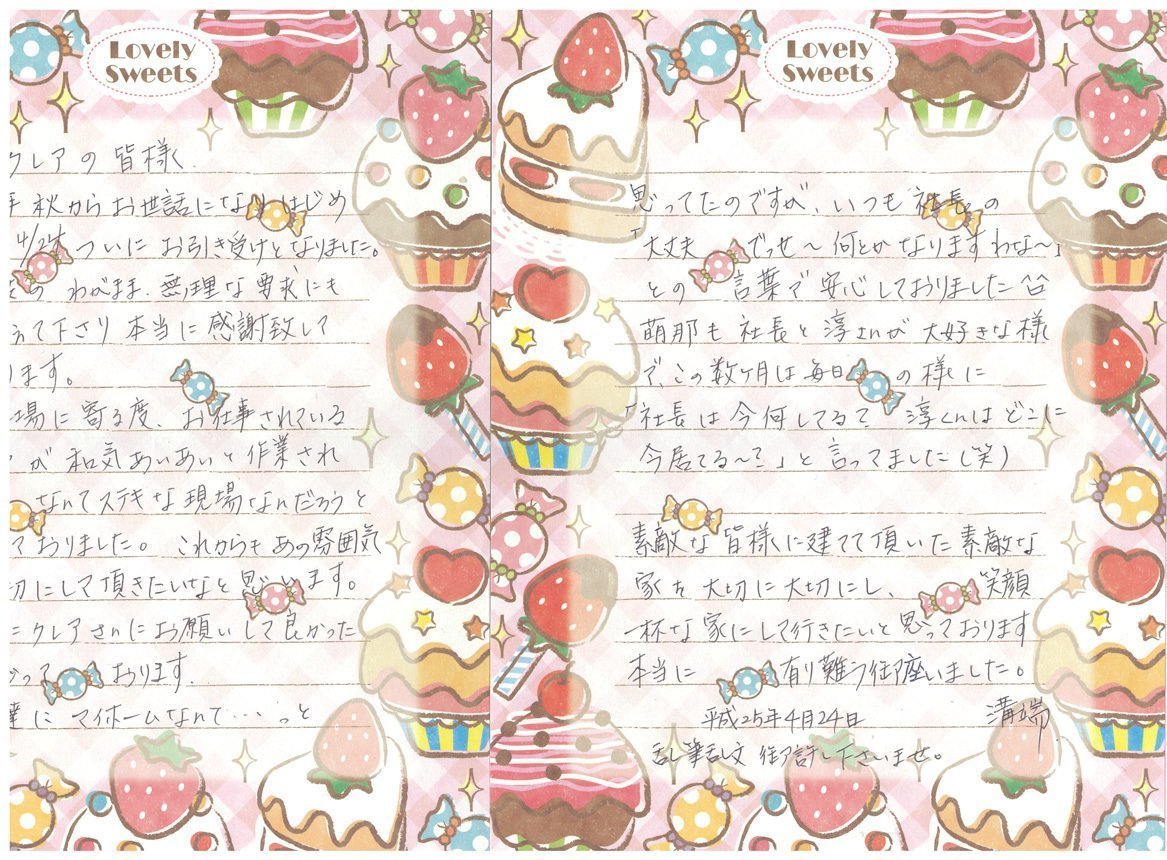 Lovely
Sweets
クレアの皆様
秋からお世話になりはじめ
4/24 ついにお引き受けとなりました。
の わがまま、無理な要求にも
えて下さり 本当に感謝致して
ります。
場に寄る度、お仕事されている
が 和気あいあいと作業され
なんてステキな現場なんだろうと
ておりました。 これからもあの雰囲気
切にして頂きたいなと思います。
にクレアさんにお願いして良かった
って おります。
達に マイホームなんて・・・っと
Lovely
Sweets
思ってたのですが、いつも社長の
「大丈夫 でっせ〜何とかなりますわな〜」
との 言葉で安心しておりました
萌那も社長と淳さんが大好きな様
で、この数ヶ月は毎日の様に
「社長は今何してるて 淳くんはどこに
今居てる〜?」と言ってました(笑)
素敵な皆様に建てて頂いた素敵な
家を大切に大切にし、 笑顔
一杯な家にして行きたいと思っております
本当に 有り難う御座いました。
平成25年4月24日 溝端
乱筆乱文 御許し下さいませ。